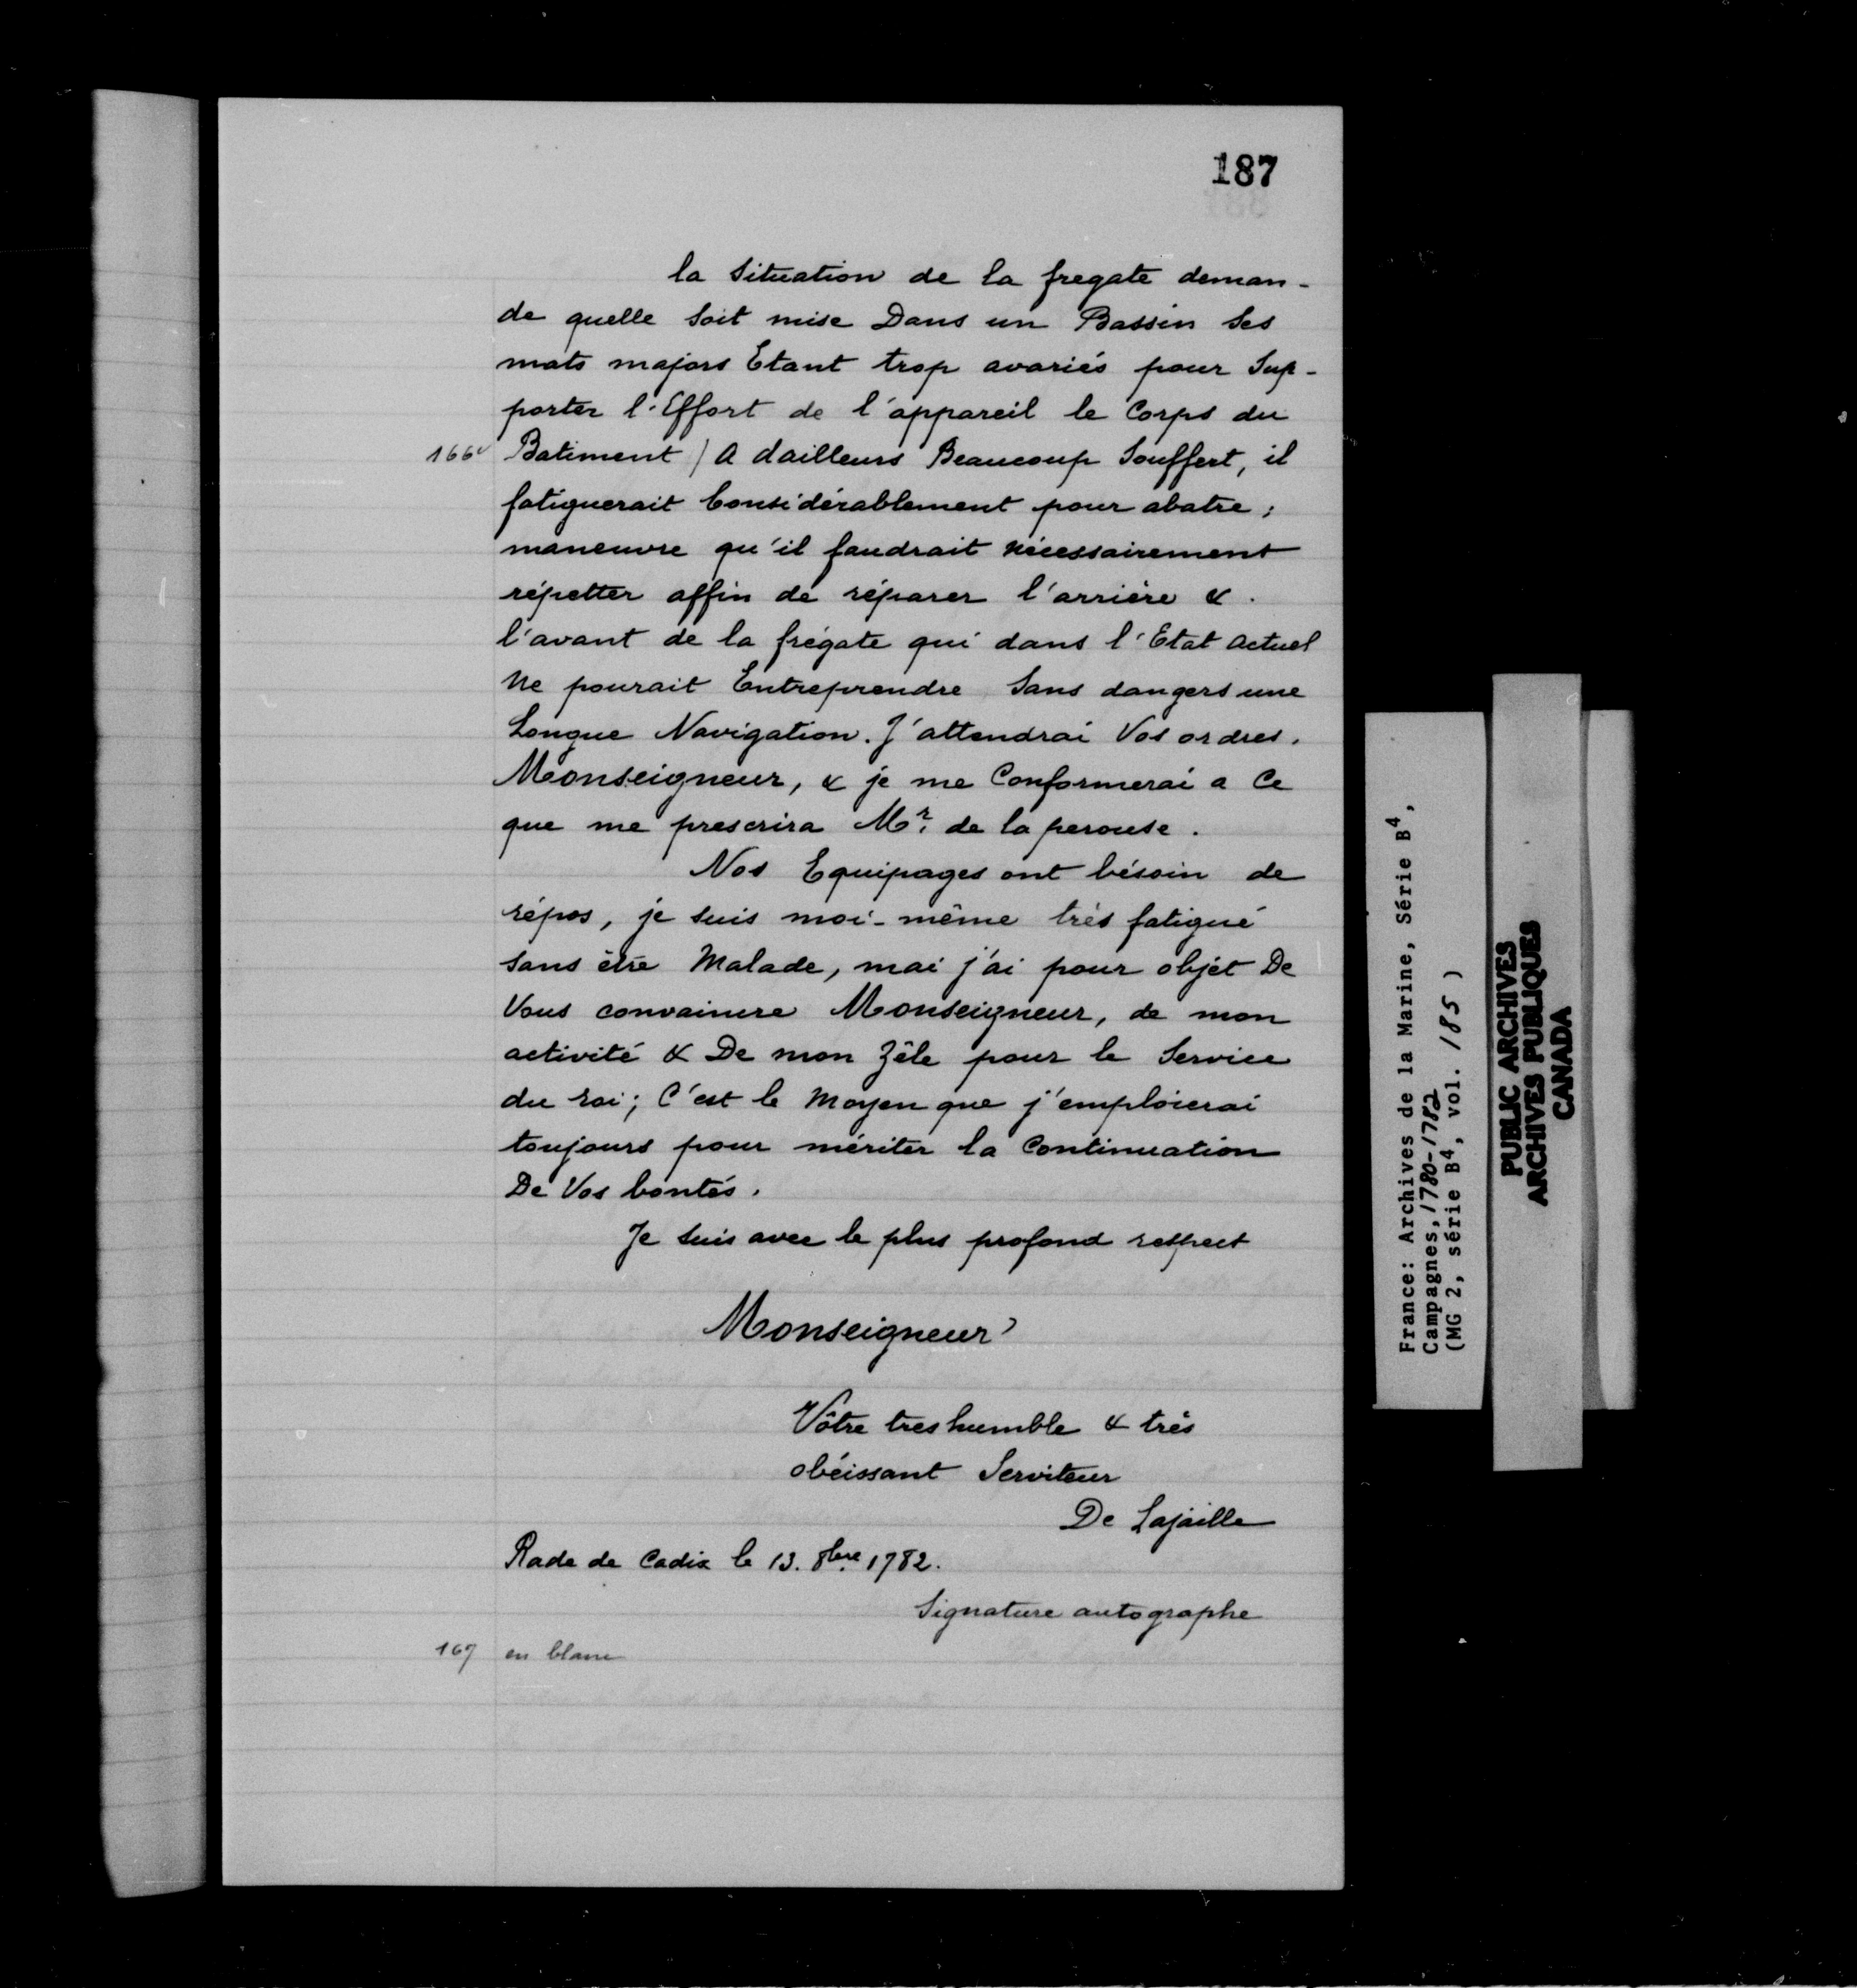 187
la Situation de la fregate deman-
de quelle soit mise Dans un Bassin ses
mats majors Etant trop avariés pour Sup-
porter l'Effort de l'appareil le Corps du
166v Batiment / A dailleurs Beaucoup Souffert, il
fatiguerait Considérablement pour abatre;
maneuvre qu'il faudrait nécessairement
répetter affin de réparer l'arrière &.
l'avant de la frégate qui dans l'Etat actuel
Ne pourait Entreprendre Sans dangers une
Longue Navigation. J'attendrai Vos ordres.
Monseigneur, & je me Conformerai a Ce
que me prescrira Mr. de la perouse.
Nos Equipages ont bésoin de
répos, je suis moi-même très fatigué
sans être Malade, mai j'ai pour objét De
Vous convaincre Monseigneur, de mon
activité & De mon Zêle pour le Service
du roi; C'est le Moyen que j'emploierai
toujours pour mériter la Continuation
De Vos bontés.
Je suis avec le plus profond respect
Monseigneur
Vôtre tres humble & très
obéissant Serviteur
De Lajaille
Rade de Cadix le 13. 8bre. 1782.
Signature autographe
167 en blanc
France: Archives de la Marine, Série B4,
Campagnes, 1780-1782
(MG 2, série B4, vol. 185)
PUBLIC ARCHIVES
ARCHIVES PUBLIQUES
CANADA